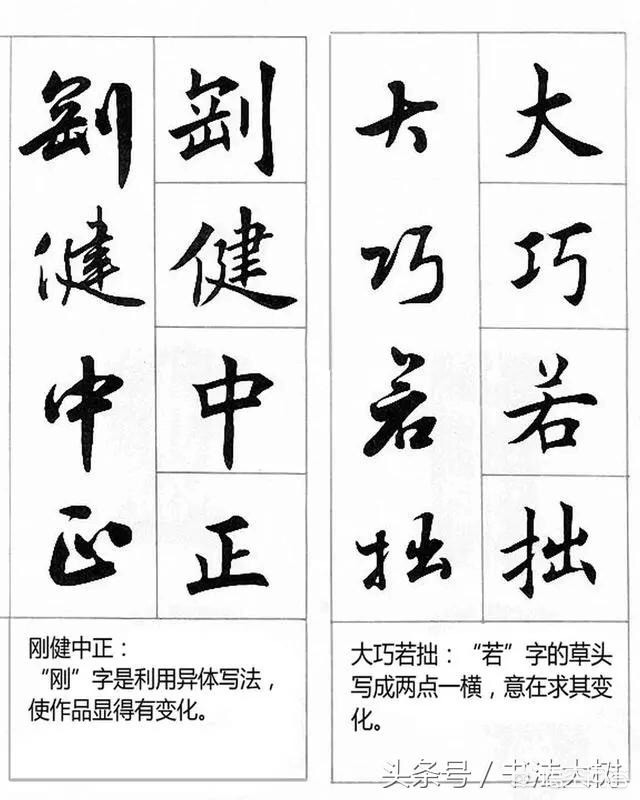 剛健中正
剛健中正
刚健中正：
“刚”字是利用异体写法，
使作品显得有变化。
大巧若拙
大巧若拙
大巧若拙：“若”字的草头
写成两点一横，意在求其变
化。
头条号 / 书法大树